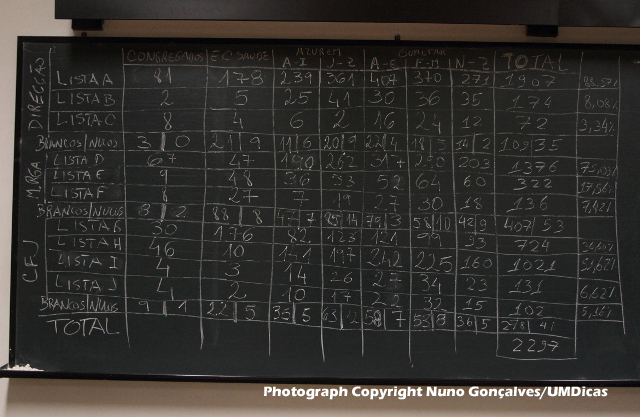 CONGREGADOS E.C. SAÚDE AZUREM GUALTAR TOTAL
A-I J-Z A-E F-M N-Z
DIRECÇÃO
LISTA A 81 178 239 361 407 370 271 1907
LISTA B 2 5 25 41 30 36 35 174 8,08%
LISTA C 8 4 6 2 16 24 12 72 3,34%
BRANCOS/NULOS 3|0 21|9 11|6 20|9 22|4 18|5 14|2 109|35
MRGA
LISTA D 67 47 262 203 1376
LISTA E 9 48 36 33 52 64 60 322
LISTA F 8 27 7 19 27 30 18 136
BRANCOS/NULOS 88|8 79|3 58|10 42|9 407|53
CFJ
30 176 82 123 33 724
LISTA H 46 10 197 242 225 160 1021
LISTA I 4 3 14 26 27 34 23 131 6,62%
LISTA J 4 2 10 17 22 32 15 102
BRANCOS/NULOS 9|1 22|5 35|5 36|5 278|41
TOTAL 2297
Photograph Copyright Nuno Gonçalves/UMDicas